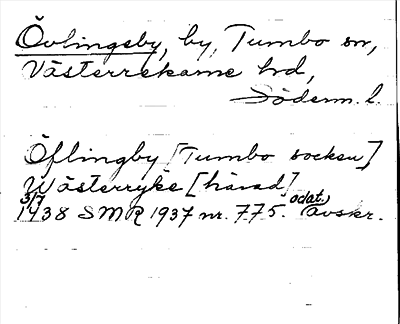 Övlingsby, by, Tumbo sn,
Västerrekarne hd,
Söderm. l.
Öflingby [Tumbo socken]
Wästerryke [härad]
3/7 1438 SMR 1937 nr. 775. odat. avskr.